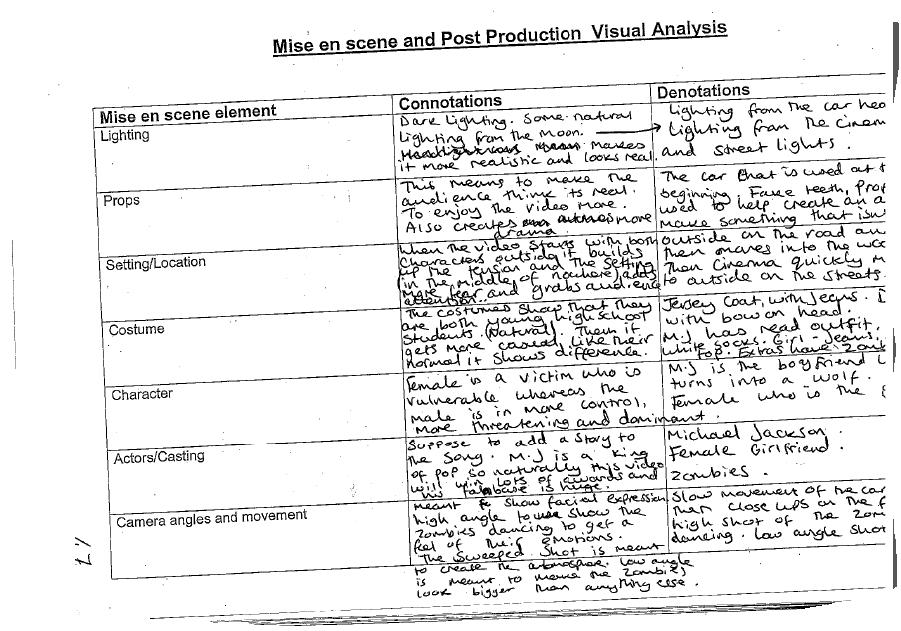 Mise en scene and Post Production Visual Analysis
Mise en scene element
Connotations
Denotations
Lighting
Dark Lighting. Some natural
lighting from the moon.
makes
it more realistic and looks real.
Lighting from the car hea
Lighting from the Cinem
and street lights.
Props
This means to make the
audience think its real.
To enjoy the video more.
Also creates more
drama.
The car that is used at t
beginning. Fake teeth, prop
used to help create an a
make something that isn
Setting/Location
When the video starts with both
characters outside it builds
up the tension and the setting
(in the middle of nowhere) adds
more fear and grabs audience
attention.
outside on the road an
then moves into the woo
Then Cinema quickly m
to outside on the streets.
Costume
The costumes show that they
are both young high school
students. (Natural). Then it
gets more casual, like their
normal it shows difference.
Jersey Coat, with jeans.
with bow on head.
M.J has read outfit.
white socks. Girl - Jeans,
Top. Extras have Zomb
Character
Female is a victim who is
vulnerable whereas the
male is in more control,
more threatening and dominant.
M.J is the boyfriend
turns into a wolf.
Female who is the
Actors/Casting
Suppose to add a story to
the song. M.J is a king
of pop so naturally this video
will win lots of awards and
his fanbase is huge.
Michael Jackson.
Female Girlfriend.
Zombies.
Camera angles and movement
meant to show facial expression
high angle to show the
zombies dancing to get a
feel of their emotions.
The sweeped shot is meant
to create the atmosphere. Low angle
is meant to make the zombies
look bigger than anything else.
Slow movement of the car
then close ups on the f
high shoot of the zom
dancing. low angle shot